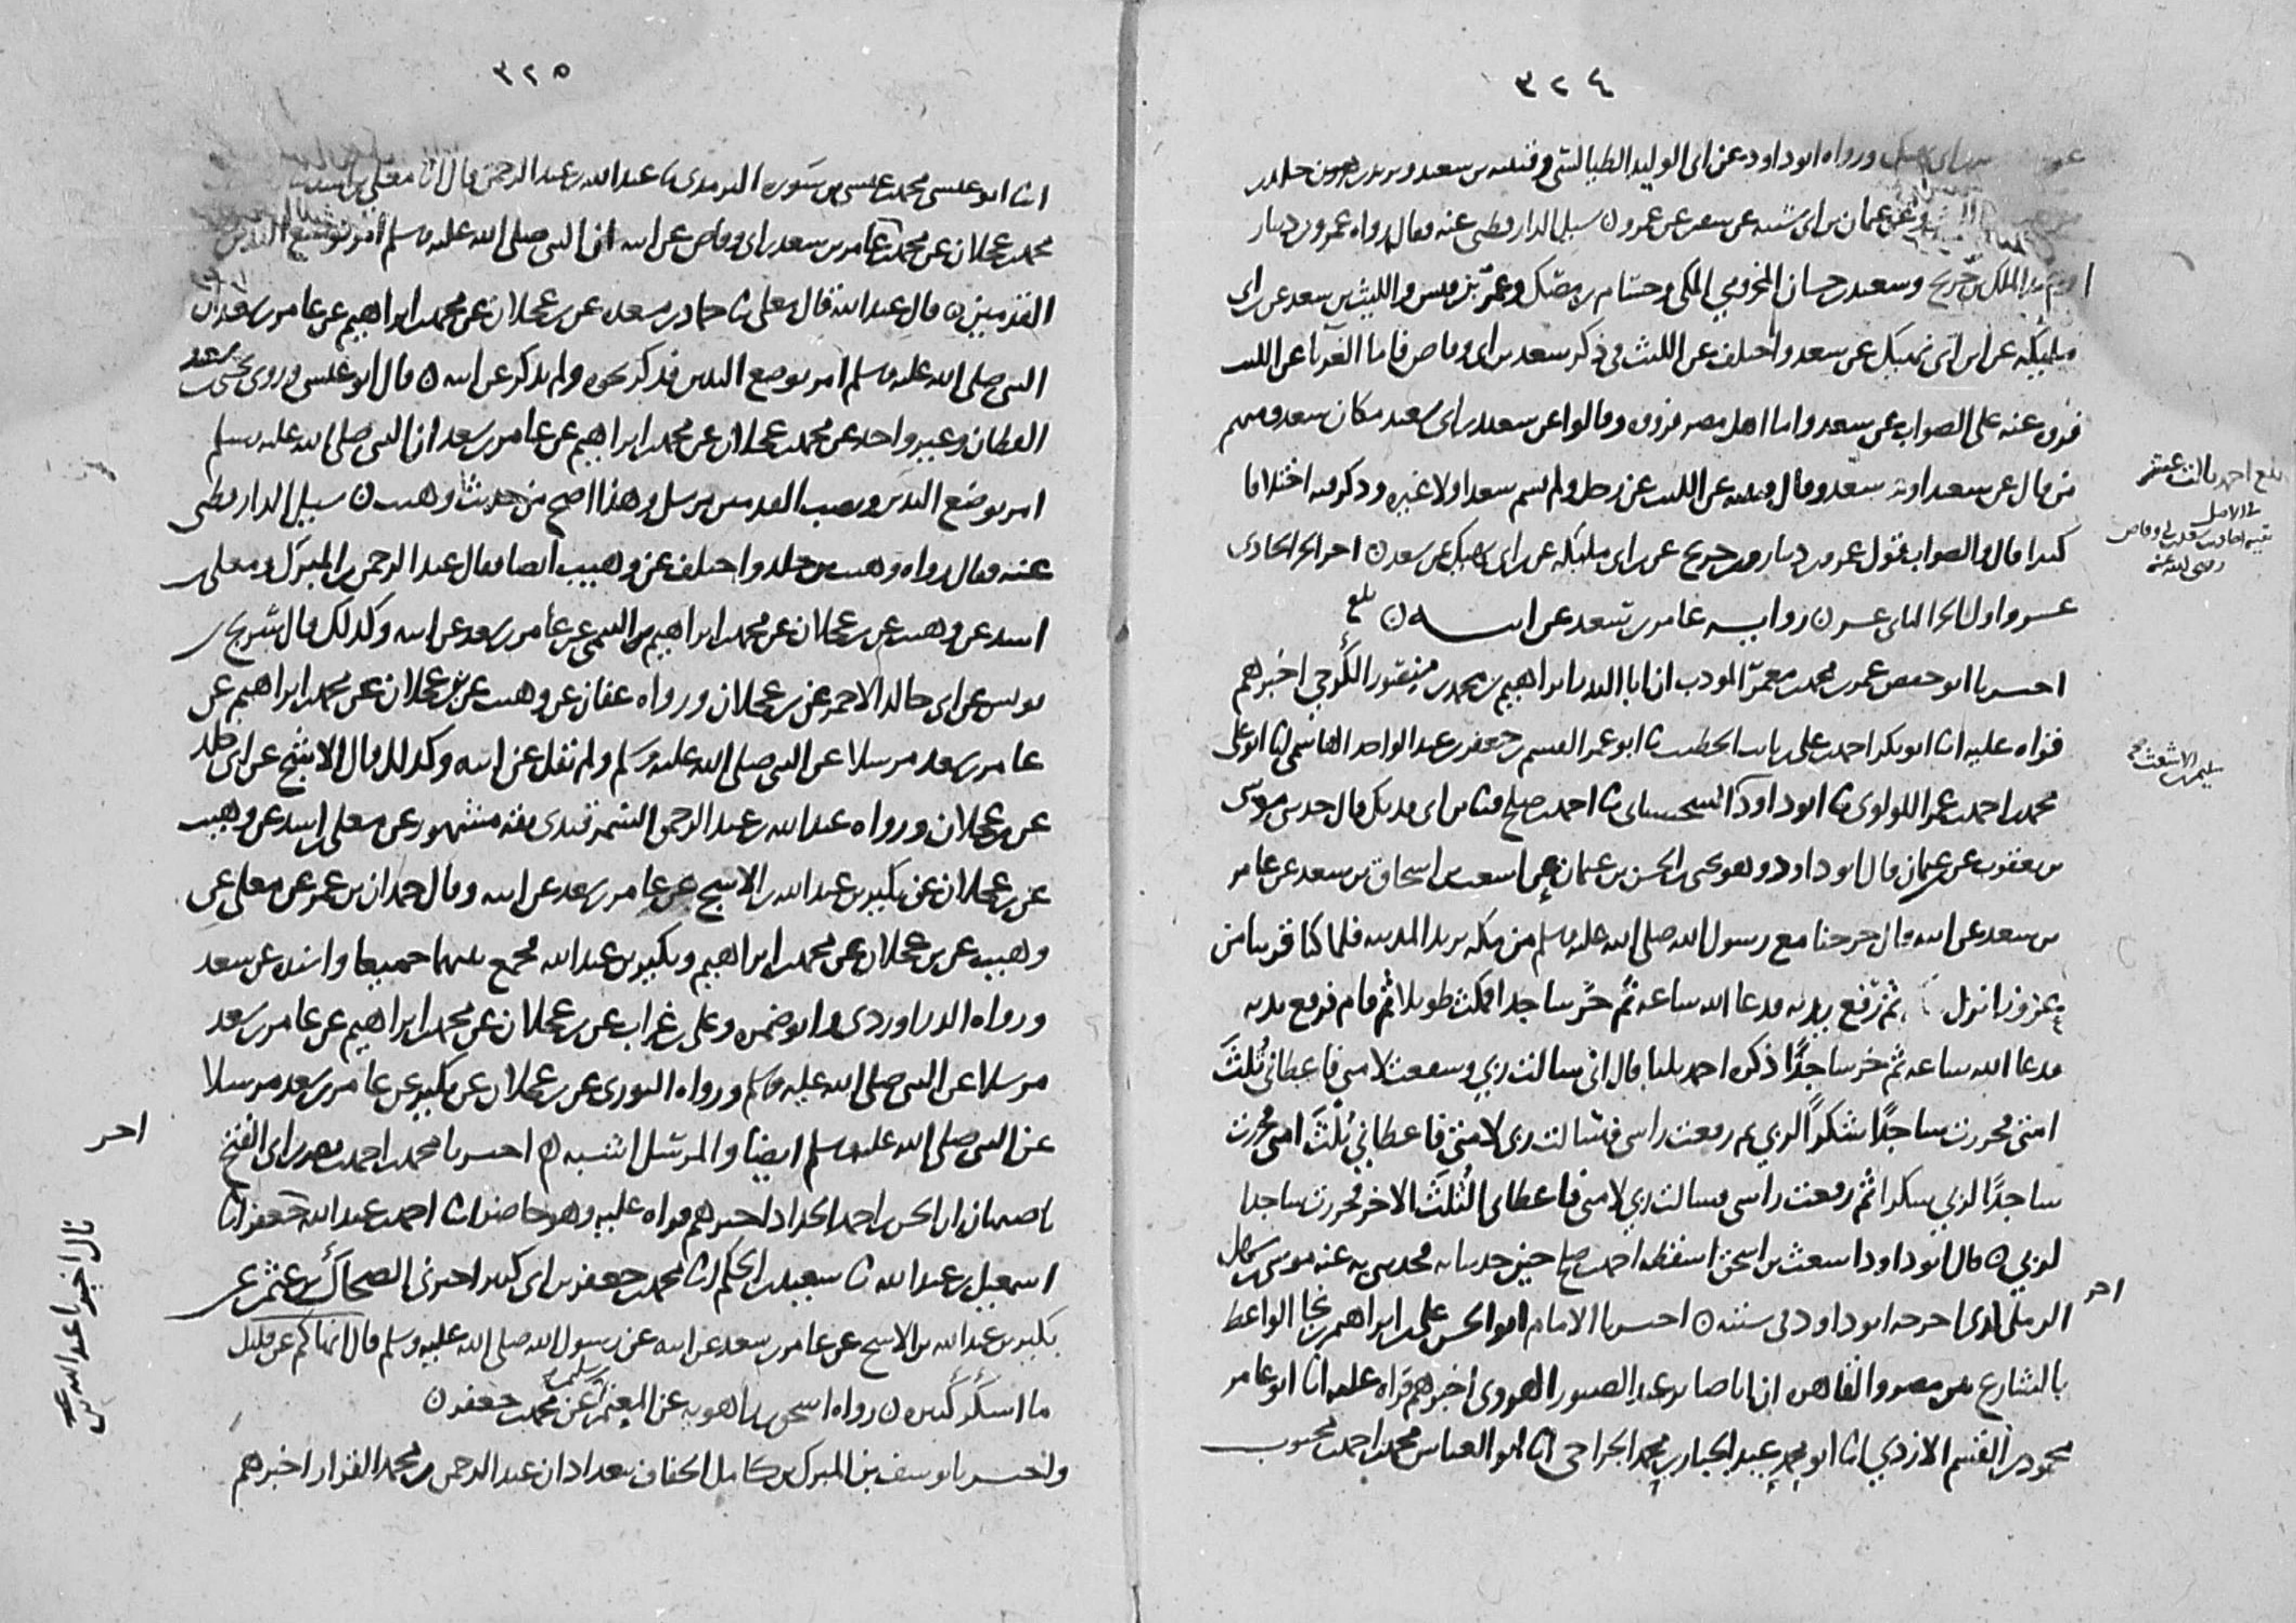 ٣٢٤
ورواه ابو داود عن ابى الوليد الطيالسى وقتيبه بن سعيد ويزيد بن خالد بن
وعن عثمان بن ابى شيبه عن سفين عن عمرو ن سيل الدارقطنى عنه فقال رواه عمرو بن دينار
الملك بن جريج وسعيد بن حسان المخزومي المكى وحسام بن مصك وعمر بن قيس والليث بن سعد عن ابن ابى
مليكه عن ابن ابى نهيك عن سعد واختلف عن الليث فى ذكر سعد بن ابى وقاص فاما الغربا عن الليث
فرووه عنه على الصواب عن سعد واما اهل مصر فرووه وقالوا عن سعيد بن ابى سعيد مكان سعد ومنهم
من قال عن سعيد او سعد وقال قتيبه عن الليث عن رجل ولم يسم سعدا ولا غيره وذكر فيه اختلافا
كثيرا قال والصواب قول عمرو بن دينار وبن جريج عن بن ابى مليكه عن بن ابى نهيك عن سعد ن اخر الجزء الحادى
عشر واول الجزء الثانى عشر ن روايه عامر بن سعد عن ابيه ن بلغ
اخبرنا ابو حفص عمر بن محمد بن معمر المودب ان ابا البدر ابراهيم بن محمد بن منصور الكرخي اخبرهم
قراه عليه انا ابو بكر احمد بن على بن ثابت الخطيب نا ابو عمر القسم بن جعفر بن عبد الواحد الهاشمى انا ابو على
محمد بن احمد بن عمر اللولوى نا ابو داود السجستانى نا احمد بن صالح نا ابن ابى فديك قال حدثنى موسى
بن يعقوب عن بن عثمان قال ابو داود وهو يحيى بن الحسن بن عثمان عن اسعث بن اسحاق بن سعد عن عامر
بن سعد عن ابيه قال خرجنا مع رسول الله صلى الله عليه وسلم من مكه يريد المدينه فلما كنا قريبا من
عزوزا نزل ثم رفع يديه فدعا الله ساعه ثم خر ساجدا فمكث طويلا ثم قام فرفع يديه
فدعا الله ساعه ثم خر ساجدًا ذكره احمد ثلثا قال انى سالت ربي وسفعت لامتى فاعطانى ثلث
امتى فخررت ساجدًا شكرًا لربي ثم رفعت راسى فسالت ربى لامتى فاعطاني ثلث امتى فخررت
ساجدًا لربي شكرا ثم رفعت راسى فسالت ربي لامتى فاعطانى الثلث الاخر فخررت ساجدا
لربي ن قال ابو داود اسعث بن اسحق اسقطه احمد بن صالح حين حدثنا به فحدثنى به عنه موسى بن سهل
الرملى كذى اخرجه ابو داود فى سننه ن اخبرنا الامام ابو الحسن على بن ابراهيم بن نجا الواعظ
بالشارع بين مصر والقاهره ان ابا صابر عبد الصبور الهروى اخبرهم قراه عليه انا ابو عامر
محمود بن القسم الازدي انا ابو محمد عبد الجبار بن محمد الجراحى انا ابو العباس محمد بن احمد بن محبوب
بلغ احمد بالثالث عشر
فى الاصل
بقيه احاديث سعد بن ابى وقاص
رضى الله عنه
سليمن بن الاشعث صح
اخر
٣٢٥
انا ابو عيسى محمد بن عيسى بن سوره الترمذى نا عبد الله بن عبد الرحمن قال انا معلى بن اسد
محمد بن عجلان عن محمد عن عامر بن سعد بن ابى وقاص عن ابيه ان النبى صلى الله عليه وسلم امر بوضع اليدين
القدمين ن قال عبد الله قال معلى نا حماد بن مسعده عن بن عجلان عن محمد بن ابراهيم عن عامر بن سعد ان
النبى صلى الله عليه وسلم امر بوضع اليدين فذكر نحوه ولم يذكر عن ابيه ن قال ابو عيسى وروى يحيى بن سعيد
القطان وغير واحد عن محمد بن عجلان عن محمد بن ابراهيم عن عامر بن سعد ان النبى صلى الله عليه وسلم
امر بوضع اليدين ونصب القدمين مرسل وهذا اصح من حديث وهيب ن سيل الدارقطنى
عنه فقال رواه وهيب بن خالد واختلف عن وهيب ايضا فقال عبد الرحمن بن المبرك ومعلى بن
اسد عن وهيب عن بن عجلان عن محمد بن ابراهيم بن التيمى عن عامر بن سعد عن ابيه وكذلك قال شريح بن
يونس عن ابى خالد الاحمر عن بن عجلان ورواه عفان عن وهيب عن بن عجلان عن محمد بن ابراهيم عن
عامر بن سعد مرسلا عن النبى صلى الله عليه وسلم ولم نقل عن ابيه وكذلك قال الاشج عن ابى خالد
عن بن عجلان ورواه عبد الله بن عبد الرحمن السمرقندى ثقه مشهور عن معلى بن اسد عن وهيب
عن بن عجلان عن بكير بن عبد الله بن الاشج عن عامر بن سعد عن ابيه وقال حمدان بن عمر عن معلى عن
وهيب عن بن عجلان عن محمد بن ابراهيم وبكير بن عبد الله فجمع بينهما جميعا واسنده عن سعد
ورواه الدراوردى وابو ضمره وعلى بن غراب عن بن عجلان عن محمد بن ابراهيم عن عامر بن سعد
مرسلا عن النبى صلى الله عليه وسلم ورواه الثورى عن بن عجلان عن بكير عن عامر بن سعد مرسلا
عن النبى صلى الله عليه وسلم ايضا والمرسل اشبه ن اخبرنا محمد بن احمد بن نصر بن ابى الفتح
باصبهان ان الحسن بن احمد الحداد اخبرهم قراه عليه وهو حاضر انا احمد بن عبد الله بن جعفر انا
اسمعيل بن عبد الله نا سعيد بن الحكم انا محمد بن جعفر بن ابى كثير اخبرنى الضحاك بن عثمن عن
بكير بن عبد الله بن الاشج عن عامر بن سعد عن ابيه عن رسول الله صلى الله عليه وسلم قال انهاكم عن قليل
ما اسكر كثيره ن رواه اسحق بن راهويه عن المعتمر بن سليمن عن محمد بن جعفر ن
واخبرنا يوسف بن المبرك بن كامل الخفاف ببغداد ان عبد الرحمن بن محمد القزاز اخبرهم
اخر
قال اخبرنا عبد الله بن